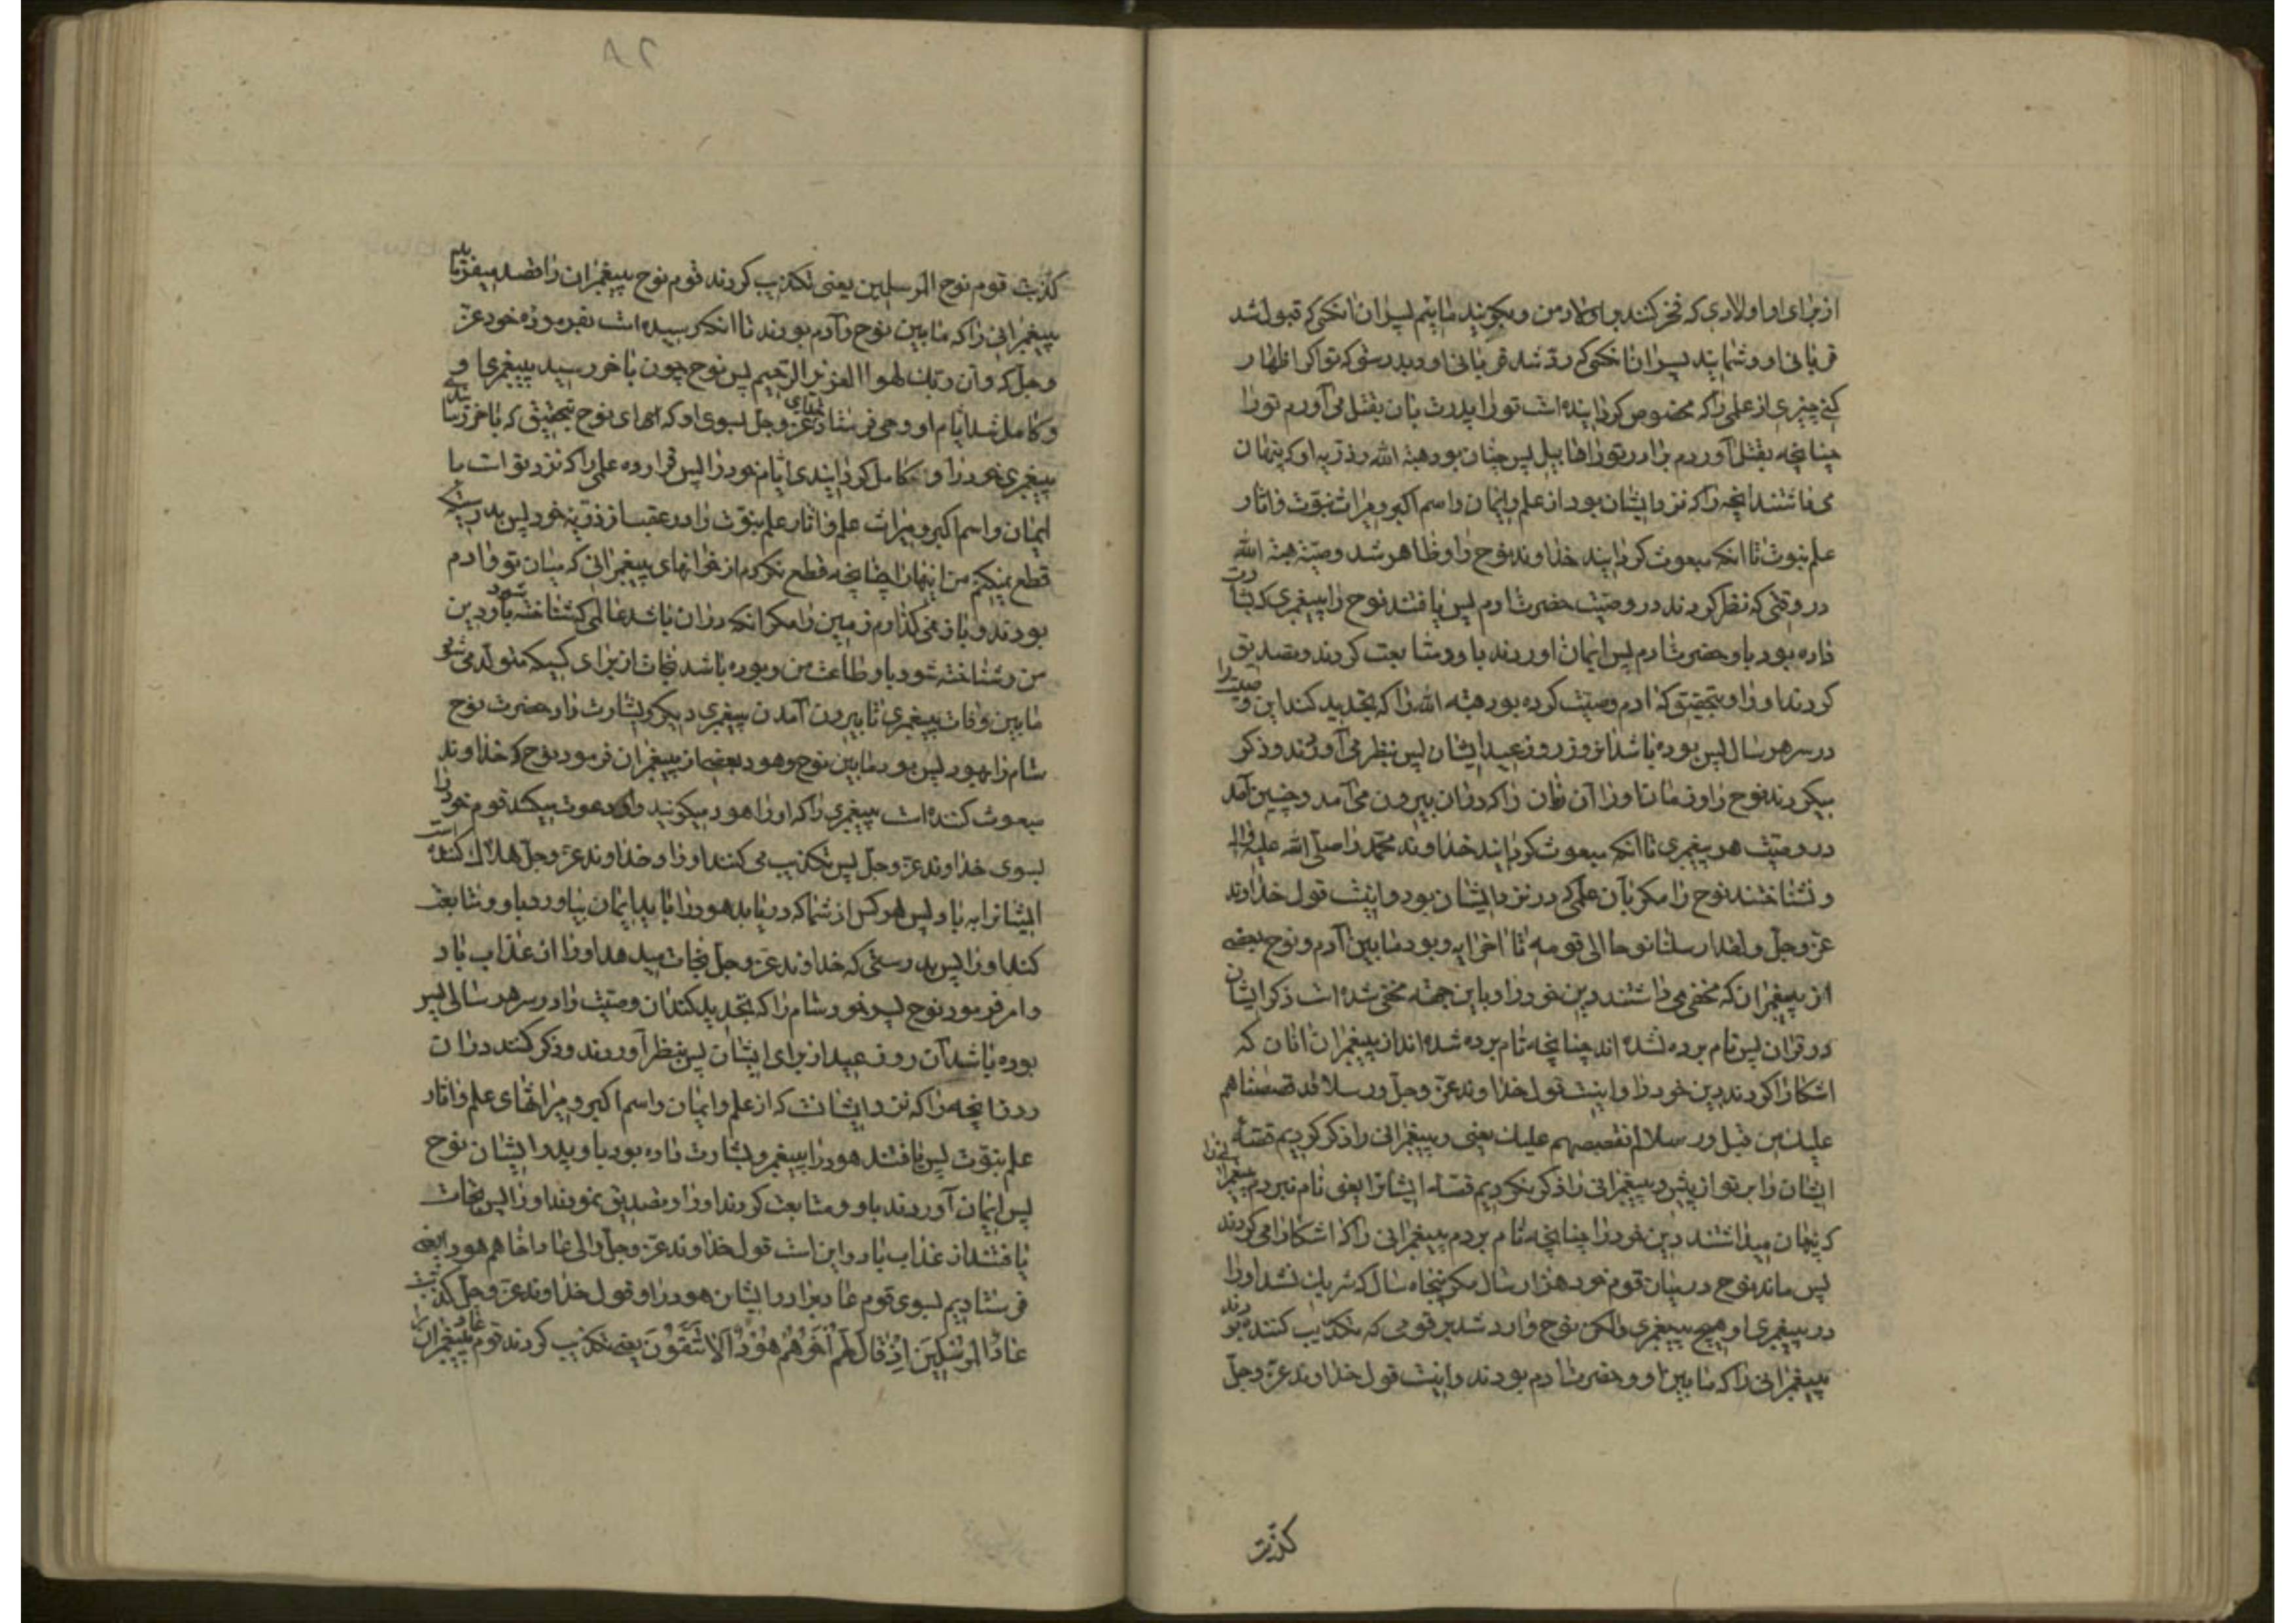 از برای او اولادی که فخر کنند بر اولاد من و بگویند مائیم پسران انکسی که قبول شد
قربانی او و شمائید پسران انکسی که رد شد قربانی او و بدرستی که تو اگر اظهار
کنی چیزی از علمی را که مخصوص گردانیده است تو را پدرت بان بقتل می آورم تو را
چنانچه بقتل آوردم برادر تو را قابیل پس چنان بود هبة الله و ذریه او که پنهان
می داشتند انچه را که نزد ایشان بود از علم و ایمان و اسم اکبر و میراث نبوت و اثار
علم نبوت تا انکه مبعوث گردانید خداوند نوح را و ظاهر شد وصیة هبة الله
در وقتی که نظر کردند در وصیت حضرت ادم پس یافتند نوح را پیغمبری که بشارت
داده بود باو حضرت ادم پس ایمان اوردند باو و متابعت کردند و تصدیق
کردند او را و بتحقیق که ادم وصیت کرده بود هبة الله را که تجدید کند این وصیت را
در سر هر سال پس بوده باشد انروز روز عید ایشان پس بنظر می آوردند و ذکر
میکردند نوح را و زمان او را آن زمان را که دران بیرون می آمد و چنین آمد
در وصیت هر پیغمبری تا انکه مبعوث گردانید خداوند محمد را صلی الله علیه و اله
و نشناختند نوح را مگر بآن علمی که در نزد ایشان بود و اینست قول خداوند
عز و جل و لقد ارسلنا نوحا الی قومه تا اخر ایه و بود مابین آدم و نوح بعضی
از پیغمبران که مخفی می داشتند دین خود را و باین جهة مخفی شده است ذکر ایشان
در قران پس نام برده نشده اند چنانچه نام برده شده اند از پیغمبران انان که
اشکارا کردند دین خود را و اینست قول خداوند عز و جل و رسلا قد قصصناهم
علیک من قبل و رسلا لم نقصصهم علیک یعنی و پیغمبرانی را ذکر کردیم قصهٔ
ایشان را بر تو از پیش و پیغمبرانی را ذکر نکردیم قصهٔ ایشانرا یعنی نام نبردم پیغمبرانی را
که پنهان میداشتند دین خود را چنانچه نام بردم پیغمبرانی را که اشکارا می کردند
پس ماند نوح در میان قوم خود هزار سال مگر پنجاه سال که شریک نشد او را
در پیغمبری او هیچ پیغمبری ولکن نوح وارد شد بر قومی که تکذیب کننده بودند
پیغمبرانی را که مابین او و حضرت ادم بودند و اینست قول خداوند عز و جل
کذبت
۲۸
کذبت قوم نوح المرسلین یعنی تکذیب کردند قوم نوح پیغمبران را قصد میفرماید
پیغمبرانی را که مابین نوح و آدم بودند تا انکه رسیده است بفرموده خود عز
و جل که و ان ربک لهو العزیز الرحیم پس نوح چون باخر رسید پیغمبری او
و کامل شد ایام او وحی فرستاد خدای عز و جل بسوی او که ای نوح بتحقیق که باخر رسانیدی
پیغمبری خود را و کامل گردانیدی ایام خود را پس قرار ده علمی را که نزد تو است با
ایمان و اسم اکبر و میراث علم و اثار علم نبوت را در عقب از ذریه خود پس بدرستیکه
قطع نمیکنم من اینهارا چنانچه قطع نکردم از خوانهای پیغمبرانی که میان تو و ادم
بودند و باز نمی گذارم زمین را مگر انکه دران باشد عالمی که شناخته شود باو دین
من و شناخته شود باو طاعت من و بوده باشد نجات از برای کسیکه متولد می شود
مابین وفات پیغمبری تا بیرون آمدن پیغمبری دیگر و بشارت داد حضرت نوح
سام را بهود پس بود مابین نوح و هود بعضی از پیغمبران فرمود نوح که خداوند
مبعوث کننده است پیغمبری را که او را هود میگویند و او دعوت میکند قوم خود را
بسوی خداوند عز و جل پس تکذیب می کنند او را و خداوند عز و جل هلاک کننده است
ایشانرا به باد پس هر کس از شما که دریابد هود را باید ایمان بیاورد باو و متابعت
کند او را پس بدرستی که خداوند عز و جل نجات میدهد او را از عذاب باد
و امر فرمود نوح پسر خود سام را که تجدید کند ان وصیت را در سر هر سالی پس
بوده باشد آن روز عید از برای ایشان پس بنظر آوردند و ذکر کنند دران
روز انچه را که نزد ایشانست که از علم و ایمان و اسم اکبر و میراثهای علم و اثار
علم نبوت پس یافتند هود را پیغمبر و بشارت داده بود باو پدر ایشان نوح
پس ایمان آوردند باو و متابعت کردند او را و تصدیق نمودند او را پس نجات
یافتند از عذاب باد و این است قول خداوند عز و جل و الی عاد اخاهم هودا یعنی
فرستادیم بسوی قوم عاد برادر ایشان هود را و قول خداوند عز و جل کذبت
عَادٌ المُرْسَلِینَ اِذْ قَالَ لَهُمْ اَخُوهُمْ هُودٌ اَلَا تَتَّقُونَ یعنی تکذیب کردند قوم عاد پیغمبران را